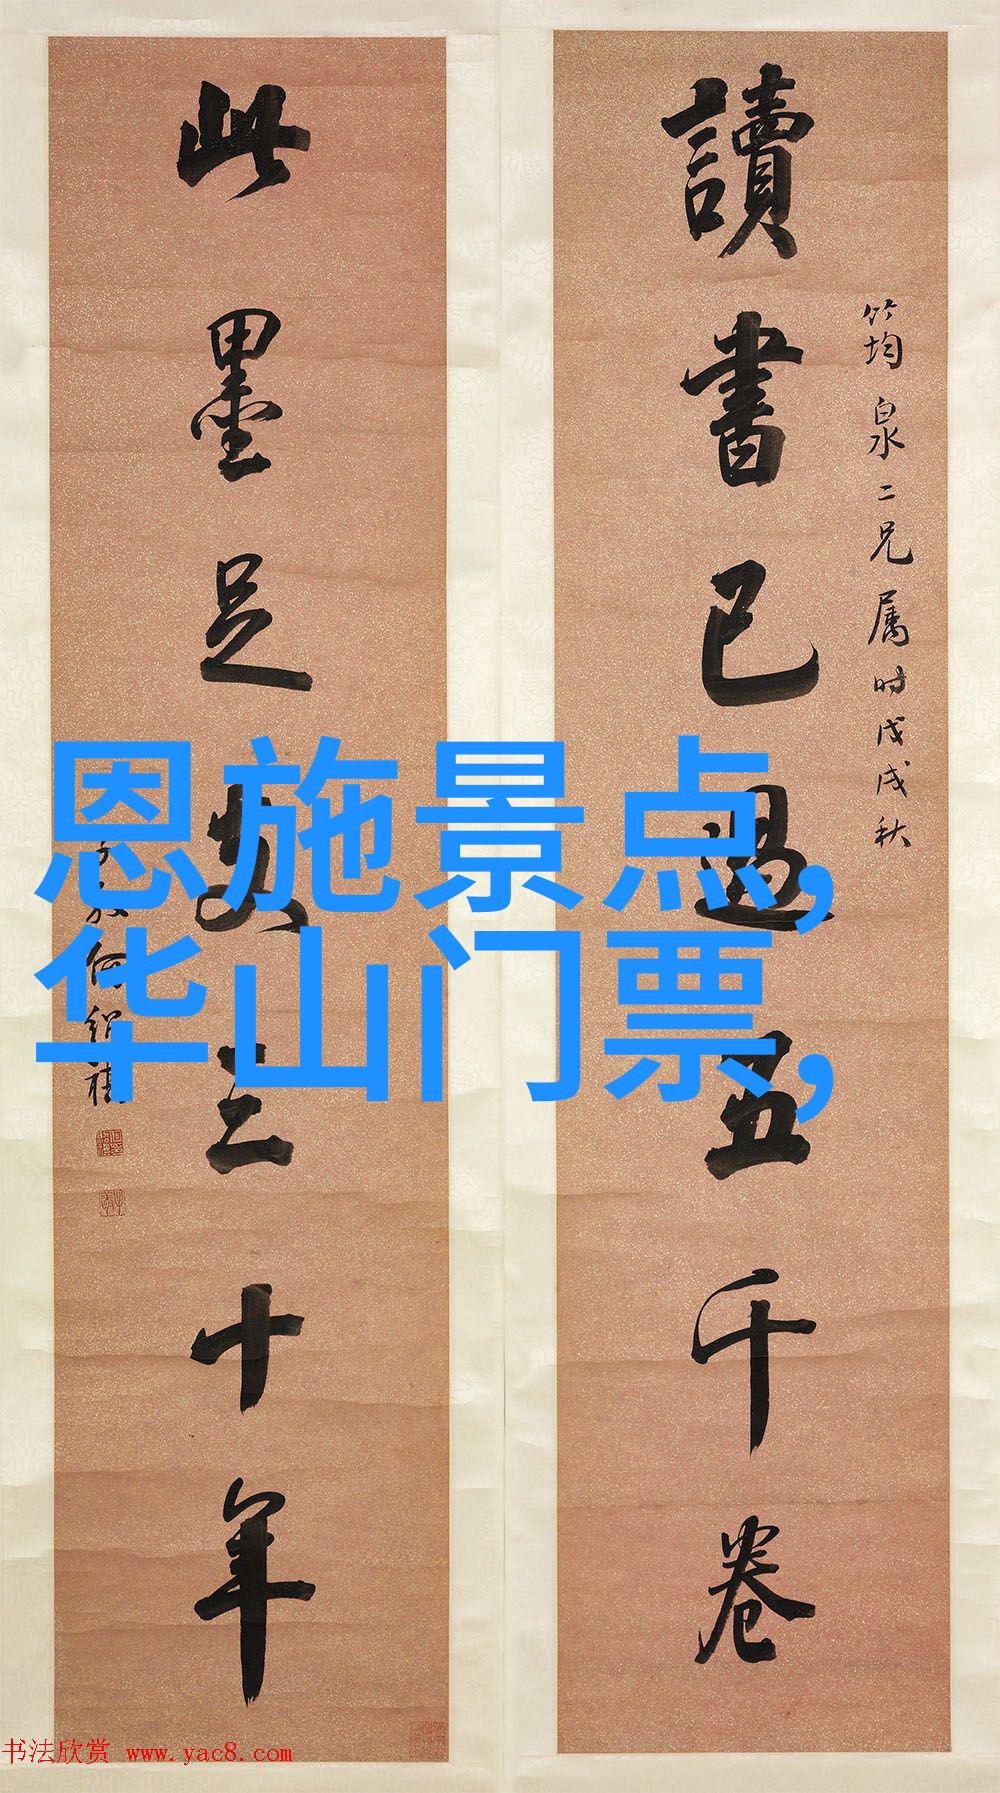 讀書已過五千卷
竹均泉二兄属時戊戌秋
此墨足支三十年
何紹基
恩施景点,
华山门票,
书法欣赏 www.yac8.com